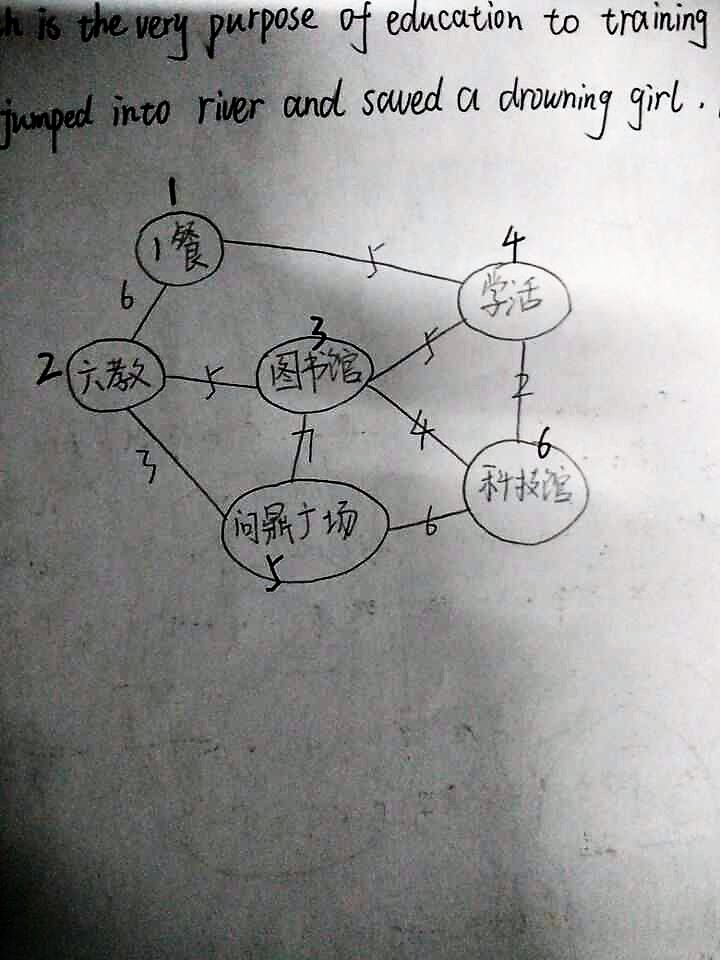 h is the very purpose of education to training
jumped into river and saved a drowning girl.
1
1餐
5
4
学活
6
2
六教
5
3
图书馆
5
2
3
7
4
6
科技馆
问鼎广场
5
6